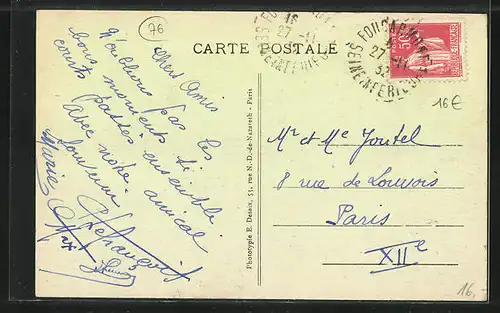 76
CARTE POSTALE
FOUCARMONT
27 -11
32
SEINE-INFERIEURE
50c
16€
Chers Amis
N'oublions pas les
bons moments si
courts passés ensemble
Avec notre amical
Souvenir
Marie
Phototypie E. Desaix, 53, rue N.-D.-de-Nazareth - Paris
Mr et Me Joutel
8 rue de Louvois
Paris
XIIe
16.-